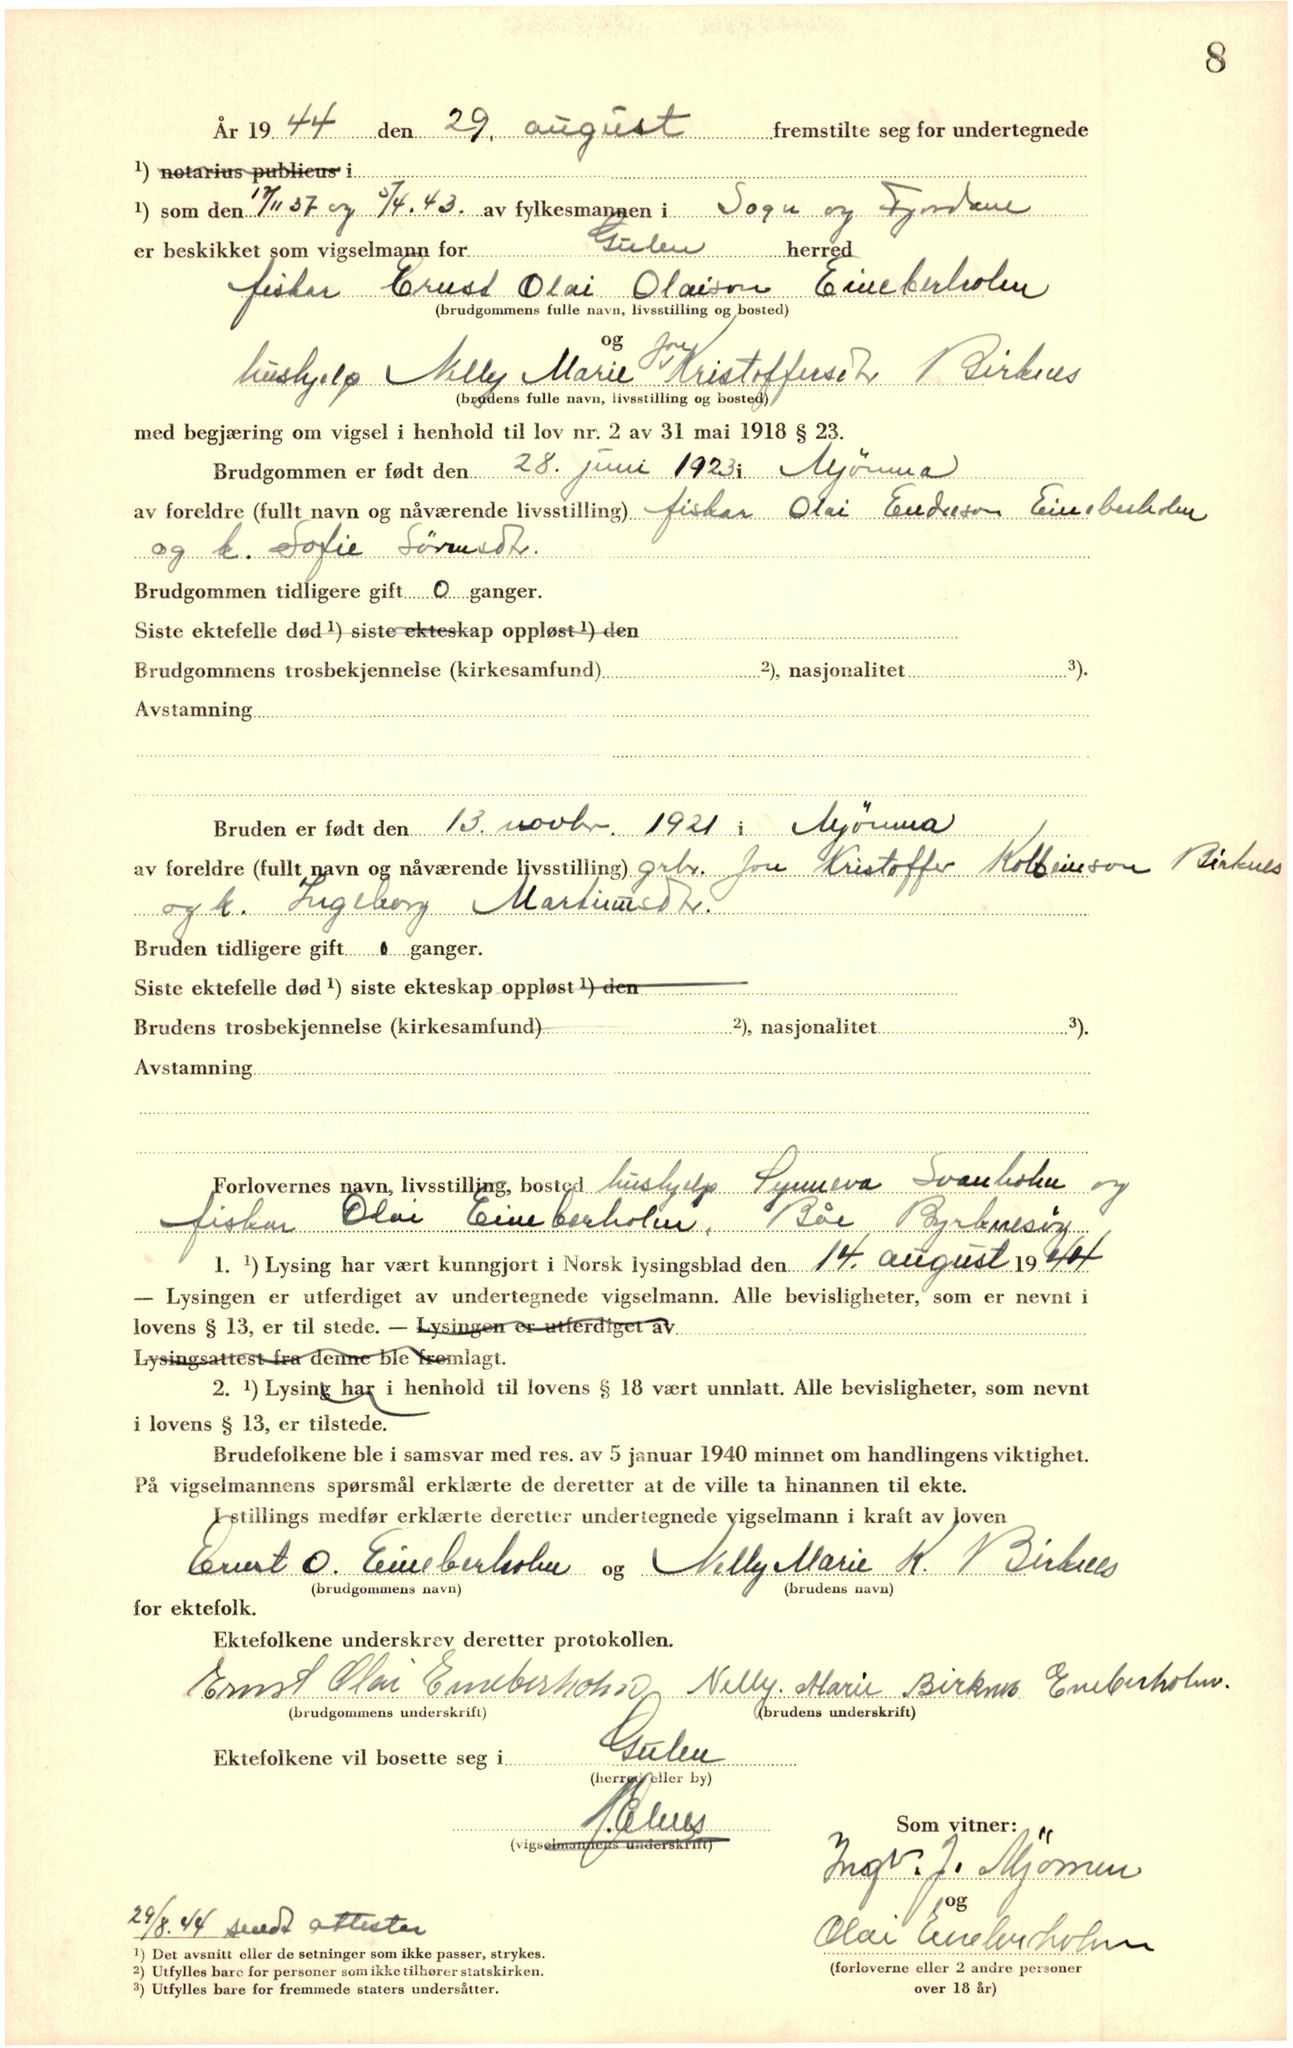 8
År 1944 den 29. august fremstilte seg for undertegnede
1) notarius publicus i
1) som den 17/11 37 og 5/4. 43. av fylkesmannen i Sogn og Fjordane
er beskikket som vigselmann for Gulen herred
fiskar Ernst Olai Olaison Eineberholm
(brudgommens fulle navn, livsstilling og bosted)
og
hushjelp Nelly Marie Jon Kristoffersdtr Birknes
(brudens fulle navn, livsstilling og bosted)
med begjæring om vigsel i henhold til lov nr. 2 av 31 mai 1918 § 23.
Brudgommen er født den 28. juni 1923 i Mjömna
av foreldre (fullt navn og nåværende livsstilling) fiskar Olai Endreson Eineberholm
og k. Sofie Sörensdtr.
Brudgommen tidligere gift 0 ganger.
Siste ektefelle død 1) siste ekteskap oppløst 1) den
Brudgommens trosbekjennelse (kirkesamfund) 2), nasjonalitet 3).
Avstamning
Bruden er født den 13. novbr. 1921 i Mjömna
av foreldre (fullt navn og nåværende livsstilling) grbr. Jon Kristoffer Kolbeinson Birknes
og k. Ingeborg Martinusdtr.
Bruden tidligere gift 0 ganger.
Siste ektefelle død 1) siste ekteskap oppløst 1) den
Brudens trosbekjennelse (kirkesamfund) 2), nasjonalitet 3).
Avstamning
Forlovernes navn, livsstilling, bosted hushjelp Synneva Svanholm og
fiskar Olai Eineberholm, Båe Byrknesöy
1. 1) Lysing har vært kunngjort i Norsk lysingsblad den 14. august 1944
— Lysingen er utferdiget av undertegnede vigselmann. Alle bevisligheter, som er nevnt i
lovens § 13, er til stede. — Lysingen er utferdiget av
Lysingsattest fra denne ble fremlagt.
2. 1) Lysing har i henhold til lovens § 18 vært unnlatt. Alle bevisligheter, som nevnt
i lovens § 13, er tilstede.
Brudefolkene ble i samsvar med res. av 5 januar 1940 minnet om handlingens viktighet.
På vigselmannens spørsmål erklærte de deretter at de ville ta hinannen til ekte.
I stillings medfør erklærte deretter undertegnede vigselmann i kraft av loven
Ernst O. Eineberholm og Nelly Marie K. Birknes
(brudgommens navn) (brudens navn)
for ektefolk.
Ektefolkene underskrev deretter protokollen.
Ernst Olai Eineberholm Nelly. Marie Birknes Eneberholm.
(brudgommens underskrift) (brudens underskrift)
Ektefolkene vil bosette seg i Gulen
(herred eller by)
(vigselmannens underskrift)
Som vitner:
Ingv. J. Mjömen
og
Olai Eineberholm
(forloverne eller 2 andre personer
over 18 år)
29/8. 44 sendt attester
1) Det avsnitt eller de setninger som ikke passer, strykes.
2) Utfylles bare for personer som ikke tilhører statskirken.
3) Utfylles bare for fremmede staters undersåtter.